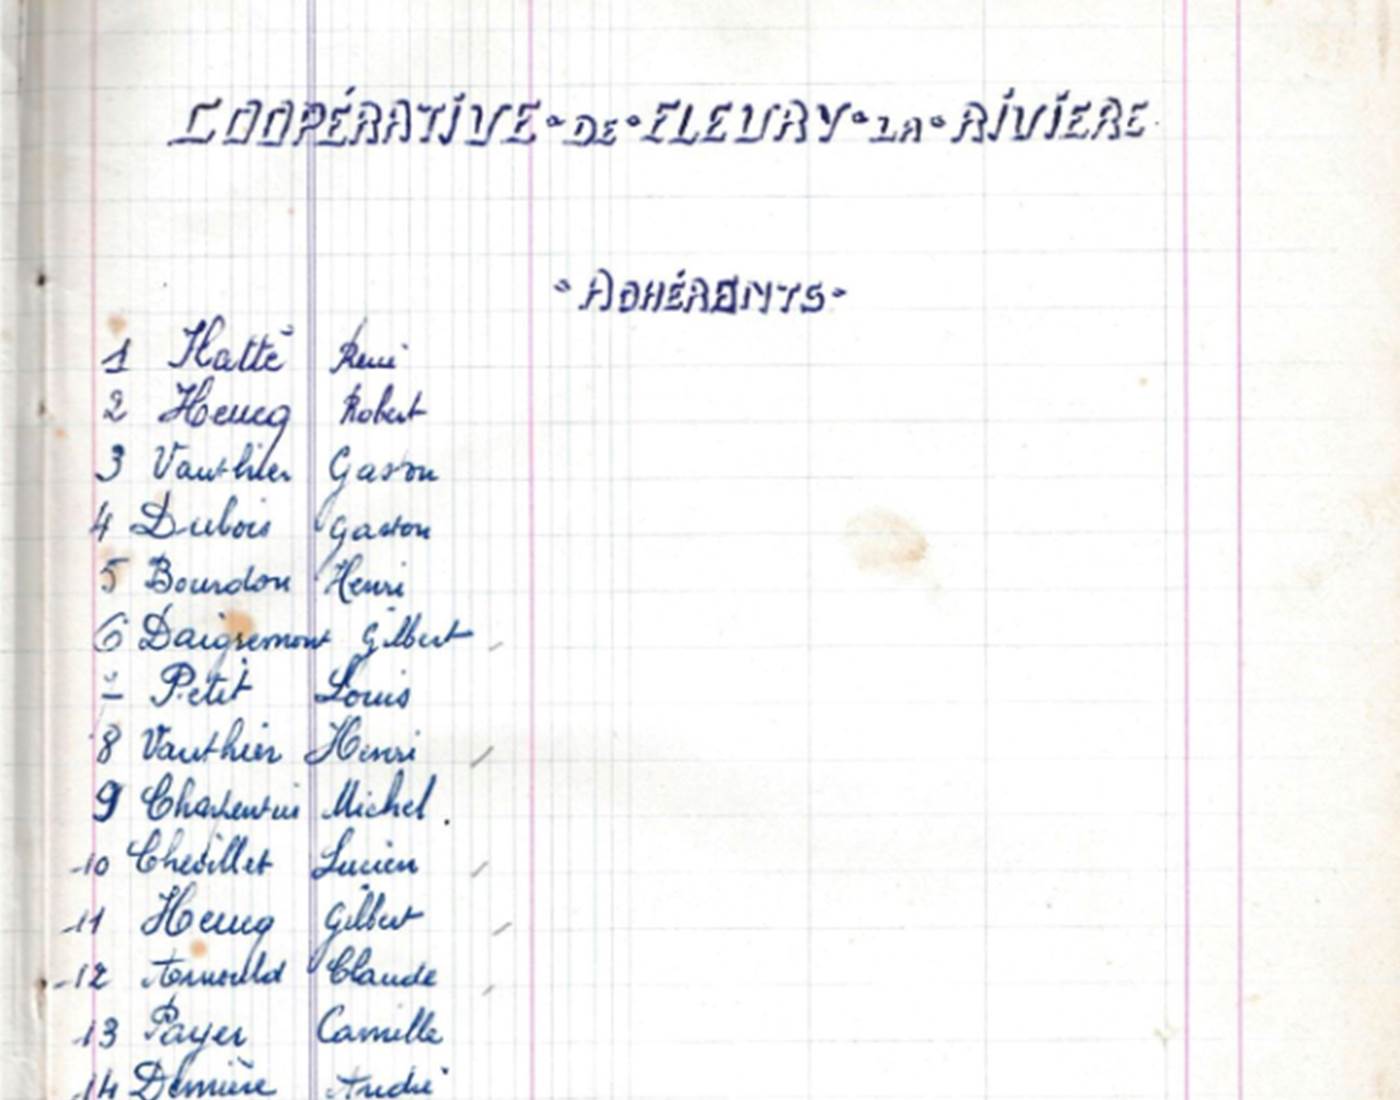 COOPÉRATIVE DE FLEURY LA RIVIÈRE
ADHÉRENTS
1 Hatté René
2 Heucq Robert
3 Vauthier Gaston
4 Dubois Gaston
5 Bourdon Henri
6 Daigremont Gilbert
Petit Louis
8 Vauthier Henri
9 Charpentier Michel.
10 Chevillet Lucien
11 Heucq Gilbert
12 Arnould Claude
13 Payer Camille
14 Demière André